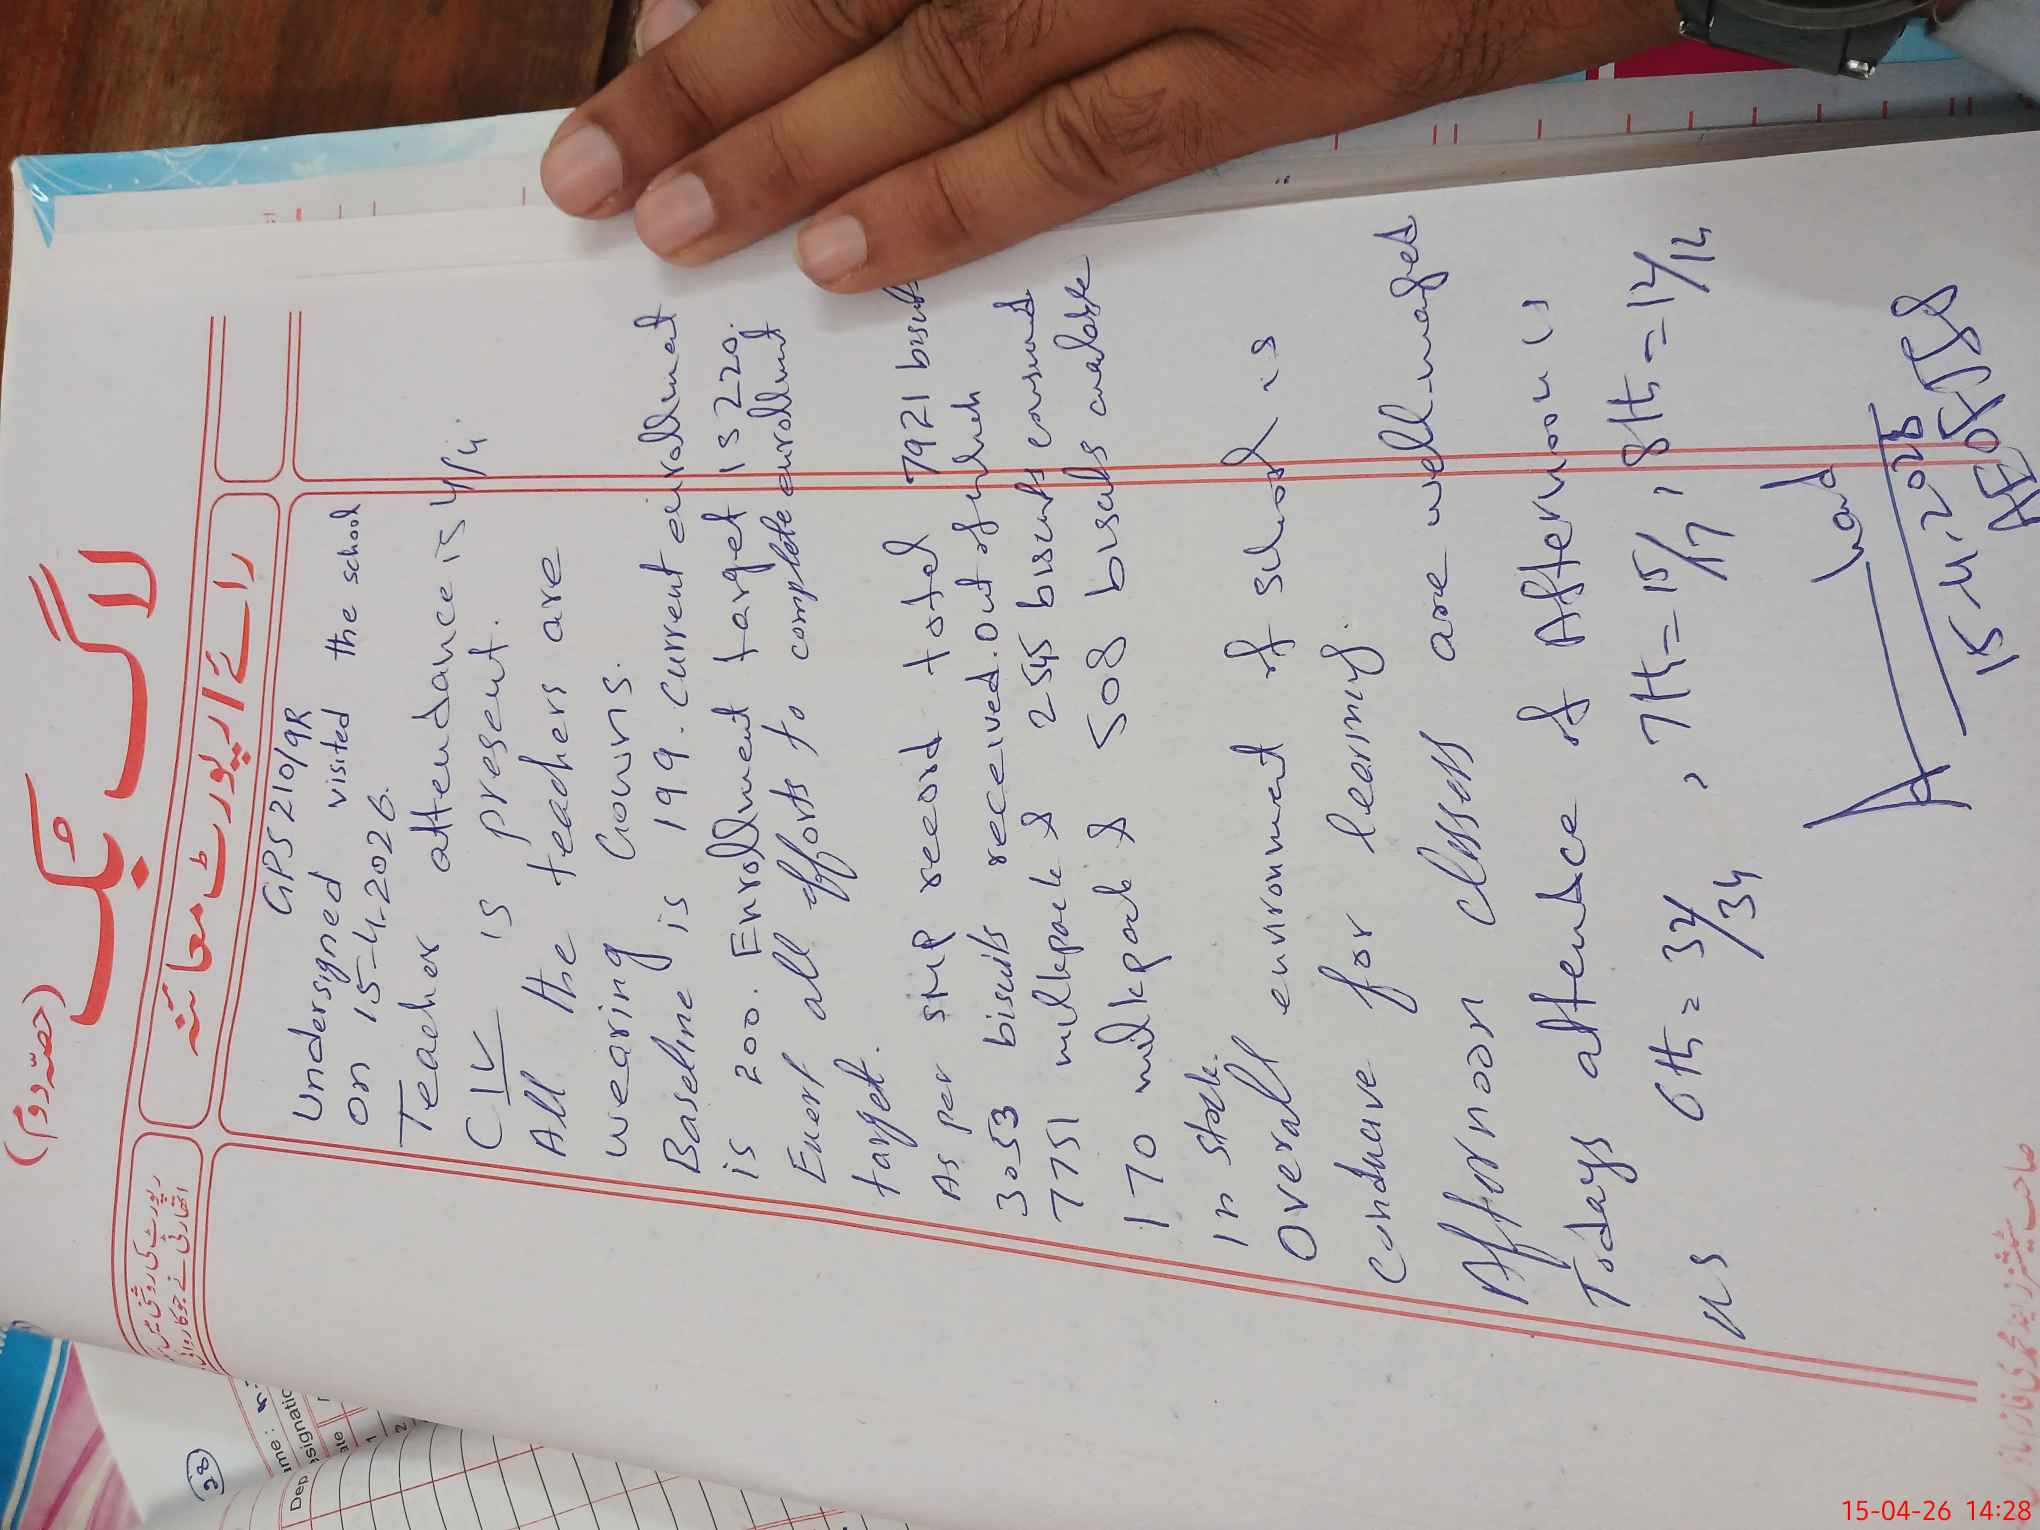 (حصہ دوم)
لاگ بک
رائے / رپورٹ معائنہ
رپورٹ کی روشنی میں
اتھارٹی نے جو کاروائی
GPS 210/9R
Undersigned visited the school
on 15-4-2026.
Teacher attendance is 4/4.
CIV is present.
All the teachers are
wearing Gowns.
Baseline is 199. Current enrollment
is 200. Enrollment target is 220.
Exert all efforts to complete enrollment
target.
As per SMP record total 7921 biscuits
3053 biscuits received. Out of which
7751 milkpack & 2545 biscuits consumed
170 milkpack & 508 biscuits available
In stock.
Overall environment of school is
Conducive for learning.
Afternoon classes are well-maged
Todays attendce of Afternoon is
us 6th = 34/34 , 7th = 15/17 , 8th = 14/14
15.4.2026
AEO
28
ame:
Dep
esignatic
ate
1
2
15-04-26 14:28